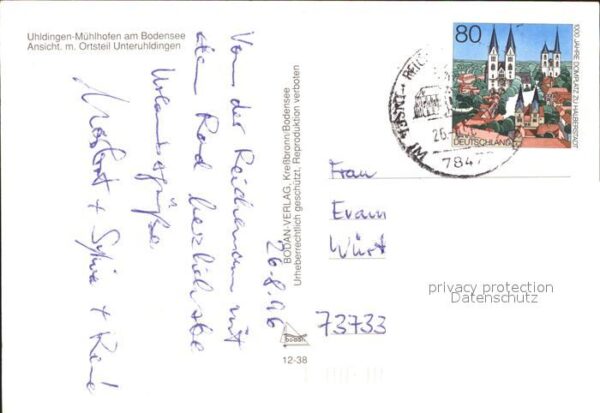 Uhldingen-Mühlhofen am Bodensee
Ansicht. m. Ortsteil Unteruhldingen
26.8.96
Von der Reichenau mit
dem Rad herzlichste
Urlaubsgrüße
+ Sylvia + René
BODAN-VERLAG, Kreßbronn/Bodensee
Urheberrechtlich geschützt. Reproduktion verboten
BODAN
12-38
80
DEUTSCHLAND
1000 JAHRE DOMPLATZ ZU HALBERSTADT
7847
Frau
Evam
Württ
73733
privacy protection
Datenschutz